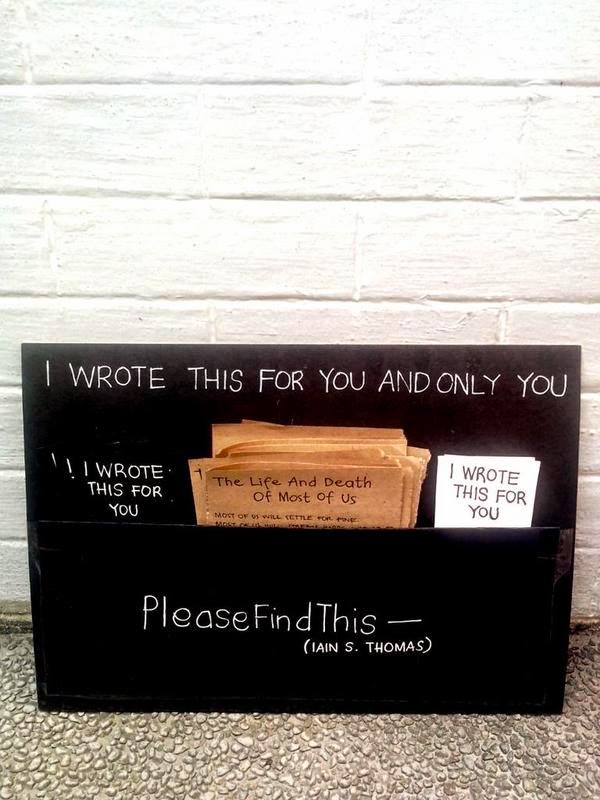 I WROTE THIS FOR YOU AND ONLY YOU
! ! I WROTE
THIS FOR
YOU
The Life And Death
Of Most Of Us
MOST OF US WILL SETTLE FOR FINE.
MOST OF US WILL
I WROTE
THIS FOR
YOU
PleaseFindThis —
(IAIN S. THOMAS)